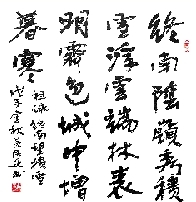 終南陰嶺秀積
雪浮雲端林表
明霽色城中增
暮寒
祖詠終南望餘雪